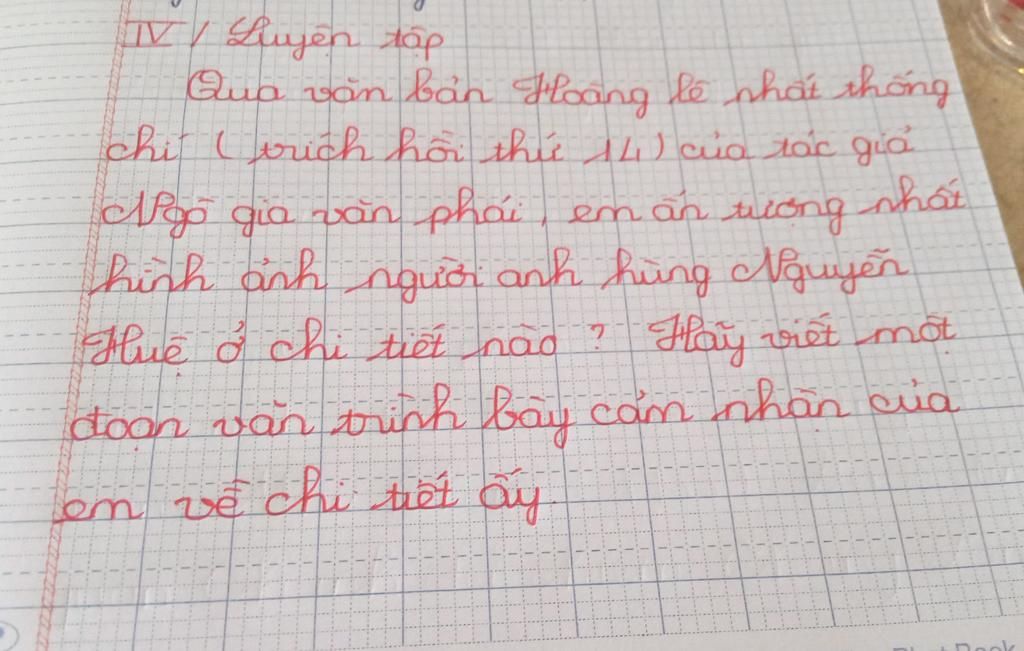 IV / Luyện tập
Qua văn bản Hoàng Lê nhất thống
chí ( trích hồi thứ 14) của tác giả
Ngô gia văn phái, em ấn tượng nhất
hình ảnh người anh hùng Nguyễn
Huệ ở chi tiết nào ? Hãy viết một
đoạn văn trình bày cảm nhận của
em về chi tiết ấy